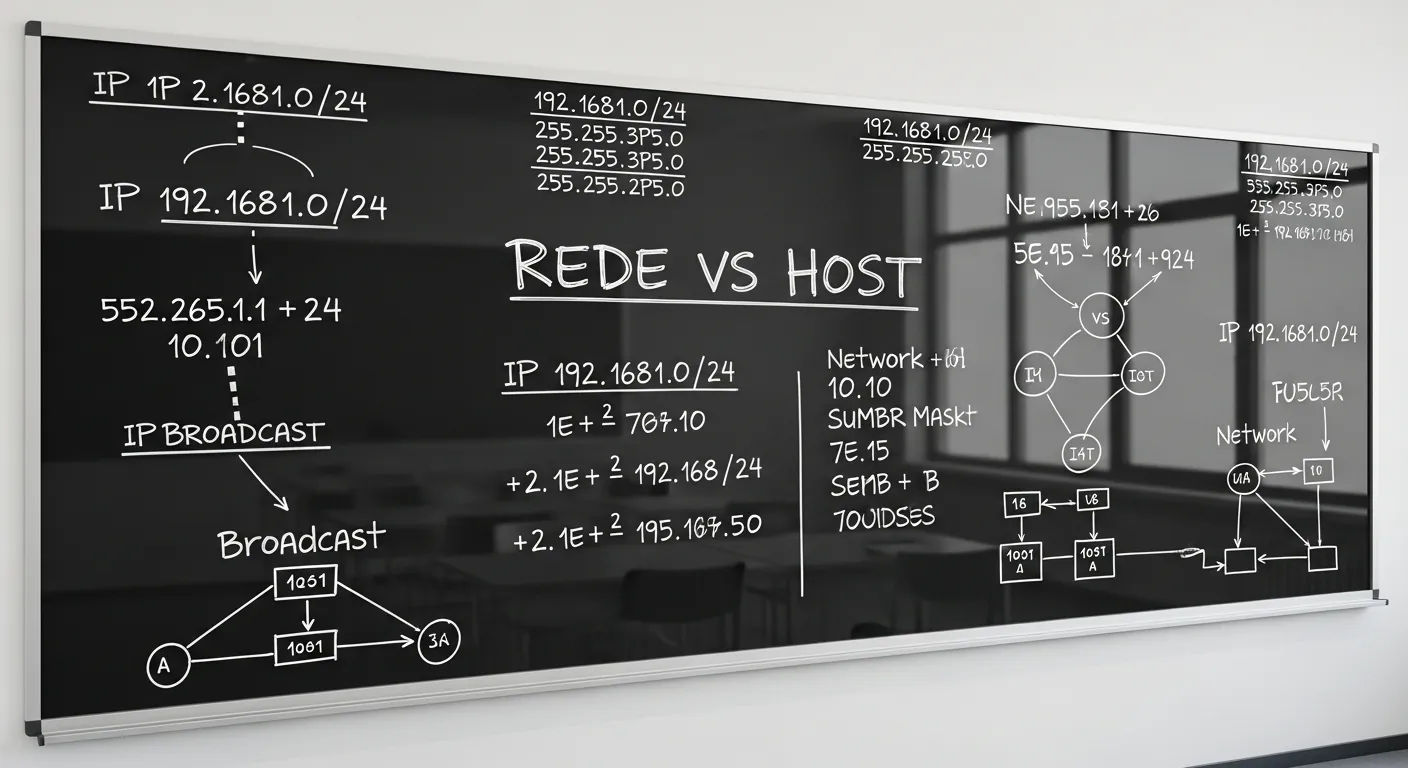 IP 1P 2.1681.0/24
IP 192.1681.0/24
552.265.1.1 + 24
10.101
IP BROADCAST
Broadcast
1051
1001
A
3A
192.1681.0/24
255.255.3P5.0
255.255.3P5.0
255.255.2P5.0
REDE VS HOST
IP 192.1681.0/24
1E+ 2
+2. 1E+ 2 192.168/24
+2. 1E+ 2
Network
10.10
SUMBR MASKT
7E.15
SEMB + B
70UIDSES
192.1681.0/24
255.255.255.0
NE.955.181+26
5E.95 - 1841+924
VS
I4
IOT
I4T
16
UB
100T
A
105T
A
192.1681.0/24
355.255.3P5.0
255.255.3F5.0
1E+ 2
IP 192.1681.0/24
FU5L5R
Network
UA
10